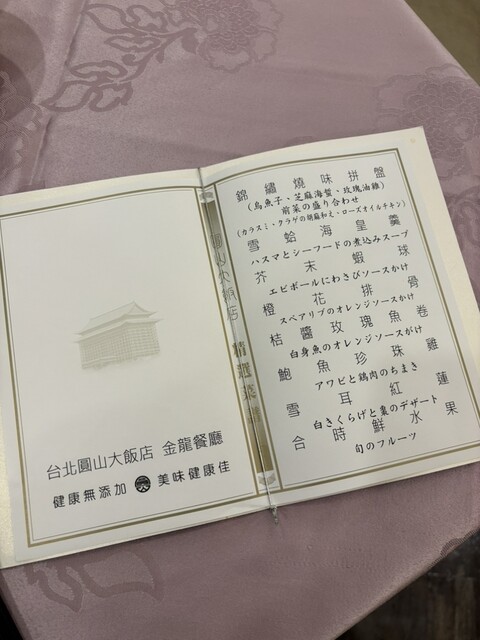 台北圓山大飯店 金龍餐廳
健康無添加 美味健康佳
錦繡燒味拼盤
(烏魚子、芝麻海蜇、玫瑰油雞)
前菜の盛り合わせ
(カラスミ、クラゲの胡麻和え、ローズオイルチキン)
雪蛤海皇羹
ハスマとシーフードの煮込みスープ
芥末蝦球
エビボールにわさびソースかけ
橙花排骨
スペアリブのオレンジソースかけ
桔醬玫瑰魚卷
白身魚のオレンジソースがけ
鮑魚珍珠雞
アワビと鶏肉のちまき
雪耳紅蓮
白きくらげと棗のデザート
合時鮮水果
旬のフルーツ